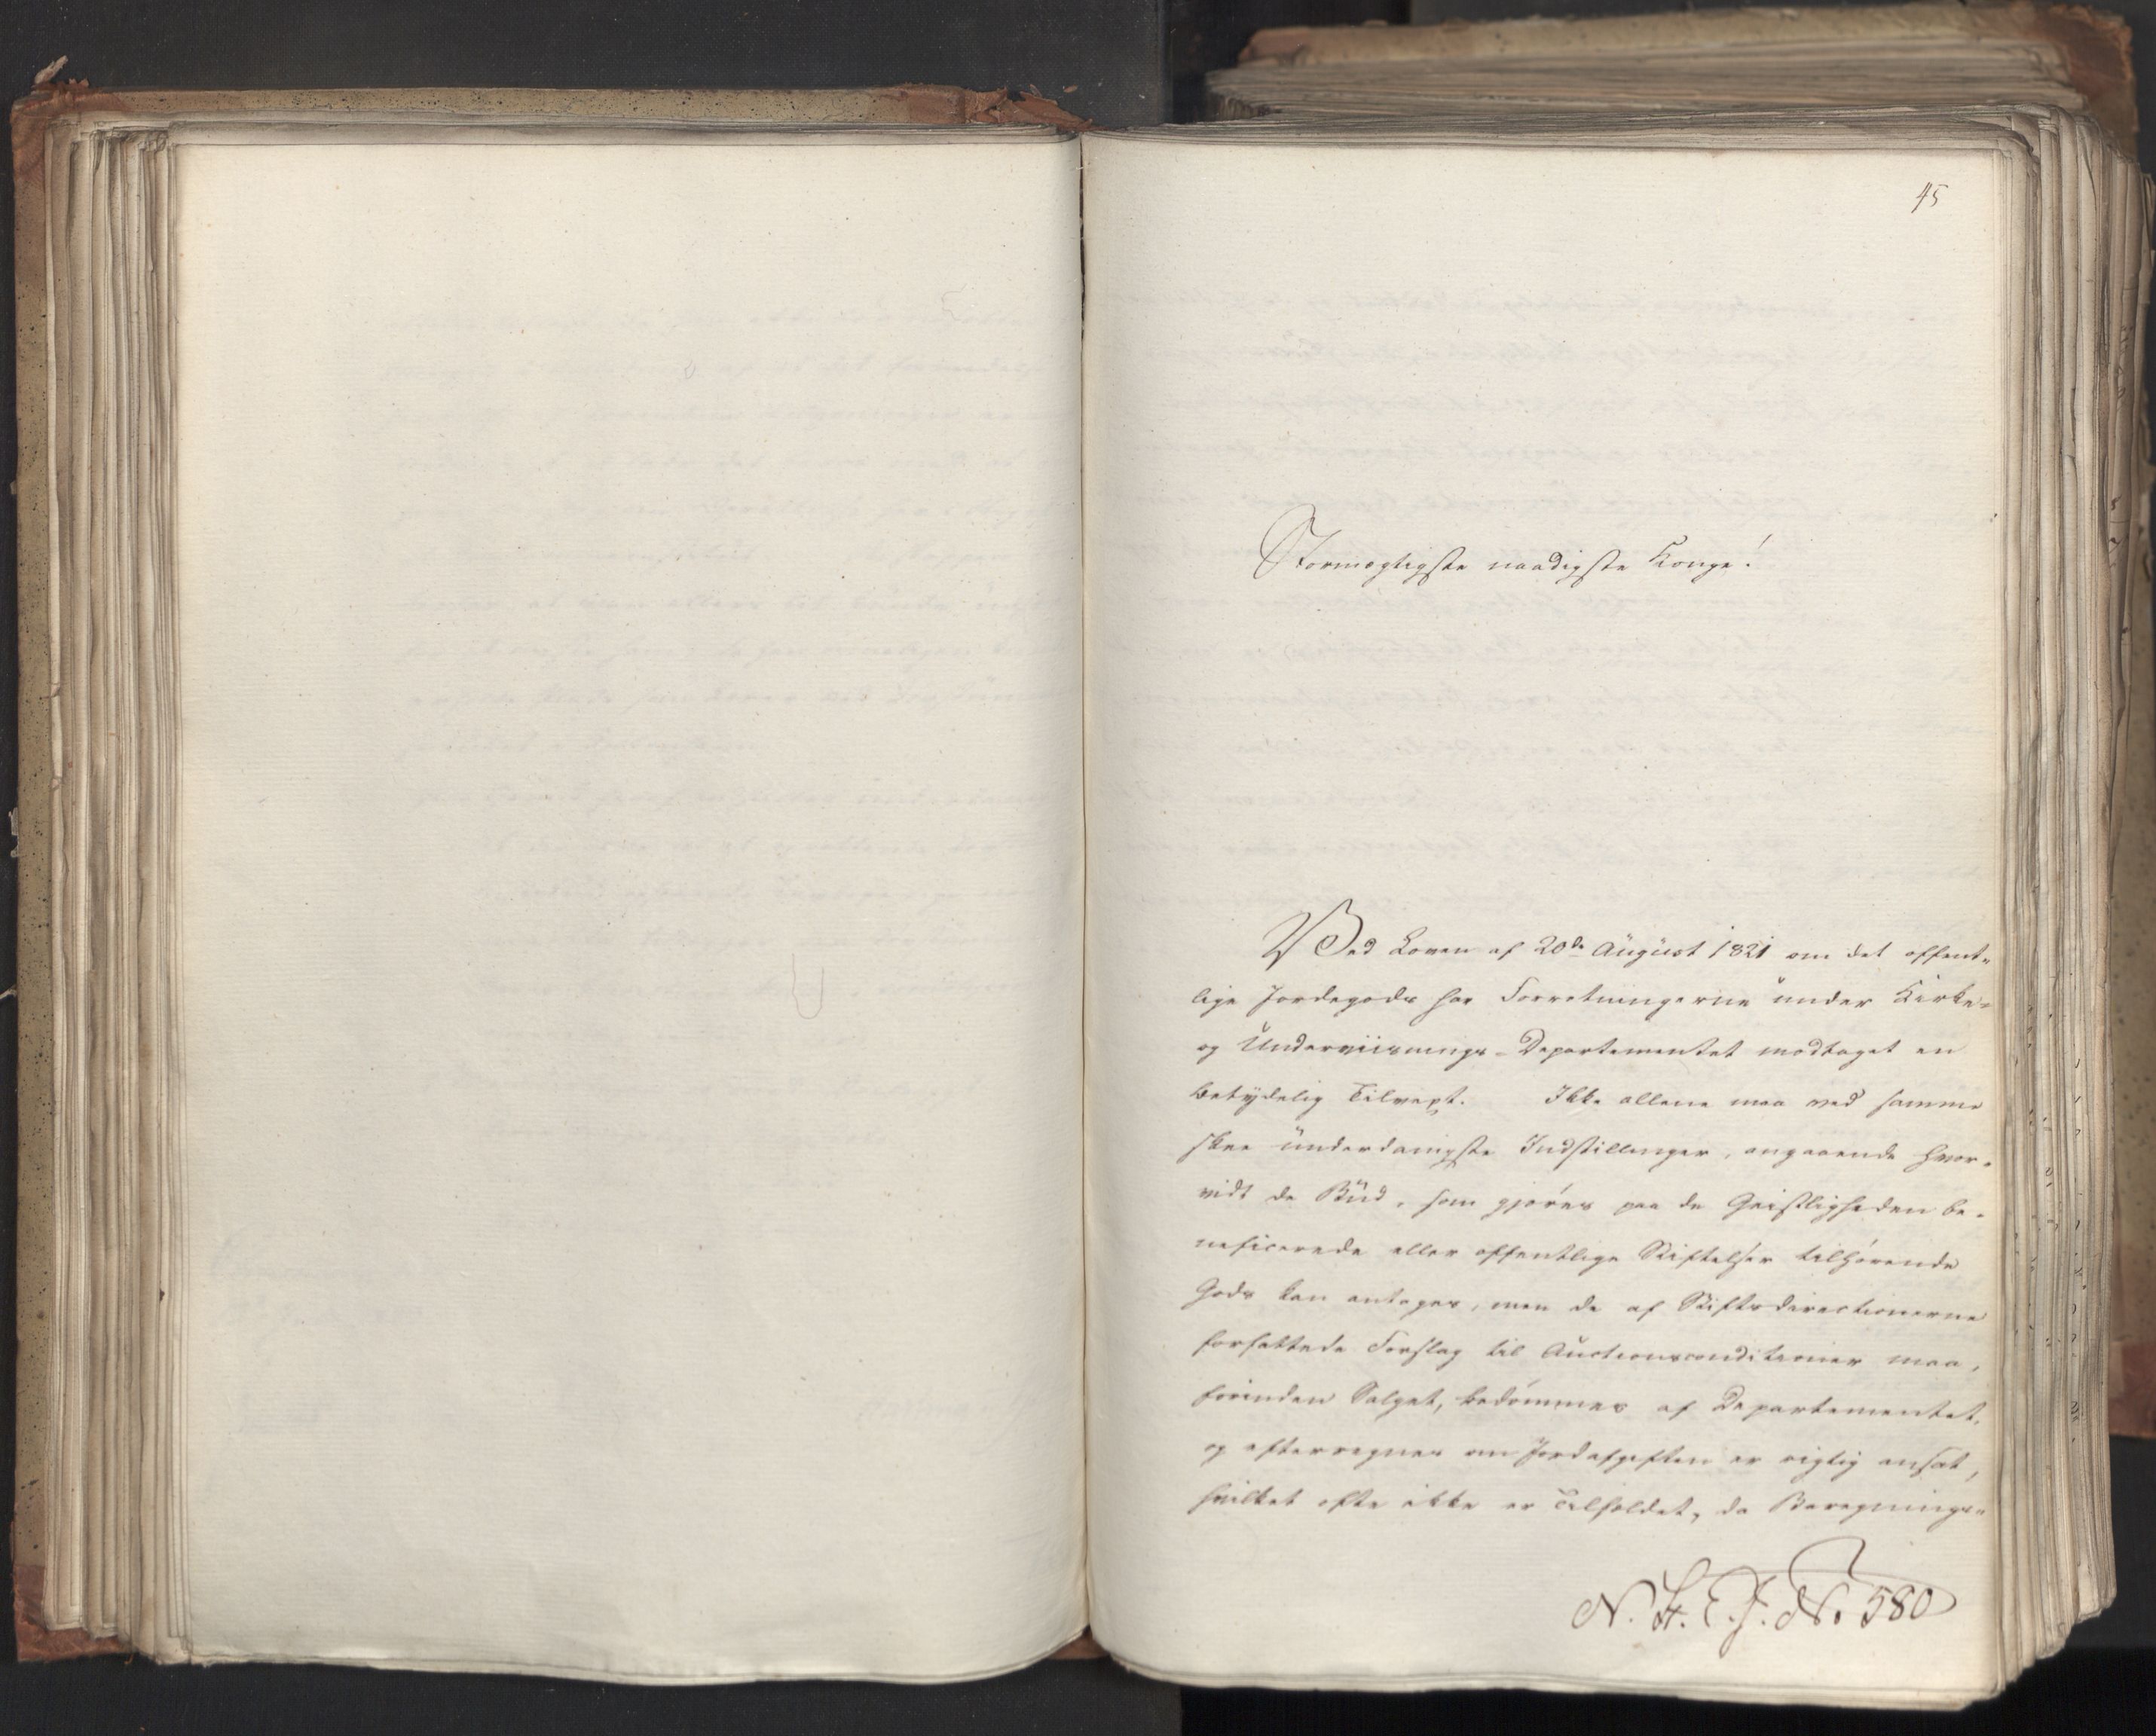 45
Stormægtigste naadigste Konge!
Ved Loven af 20de August 1821 om det offent-
lige Jordegods har Forretningerne under Kirke-
og Underviisnings-Departementet modtaget en
betydelig Tilvext. Ikke allene maa ved samme
skee underdanigste Indstillinger, angaaende hvor-
vidt de Bud, som gjøres paa de Geistligheden be-
neficerede eller offentlige Stiftelser tilhørende
Gods kan antages, men de af Stiftsdirectionerne
forfattede Forslag til Auctionsconditioner maa,
forinden Salget, bedømmes af Departementet,
og efterregnes om Jordafgiften er rigtig ansat,
hvilket ofte ikke er Tilfældet, da Beregnings-
N. St. E. J. No 580